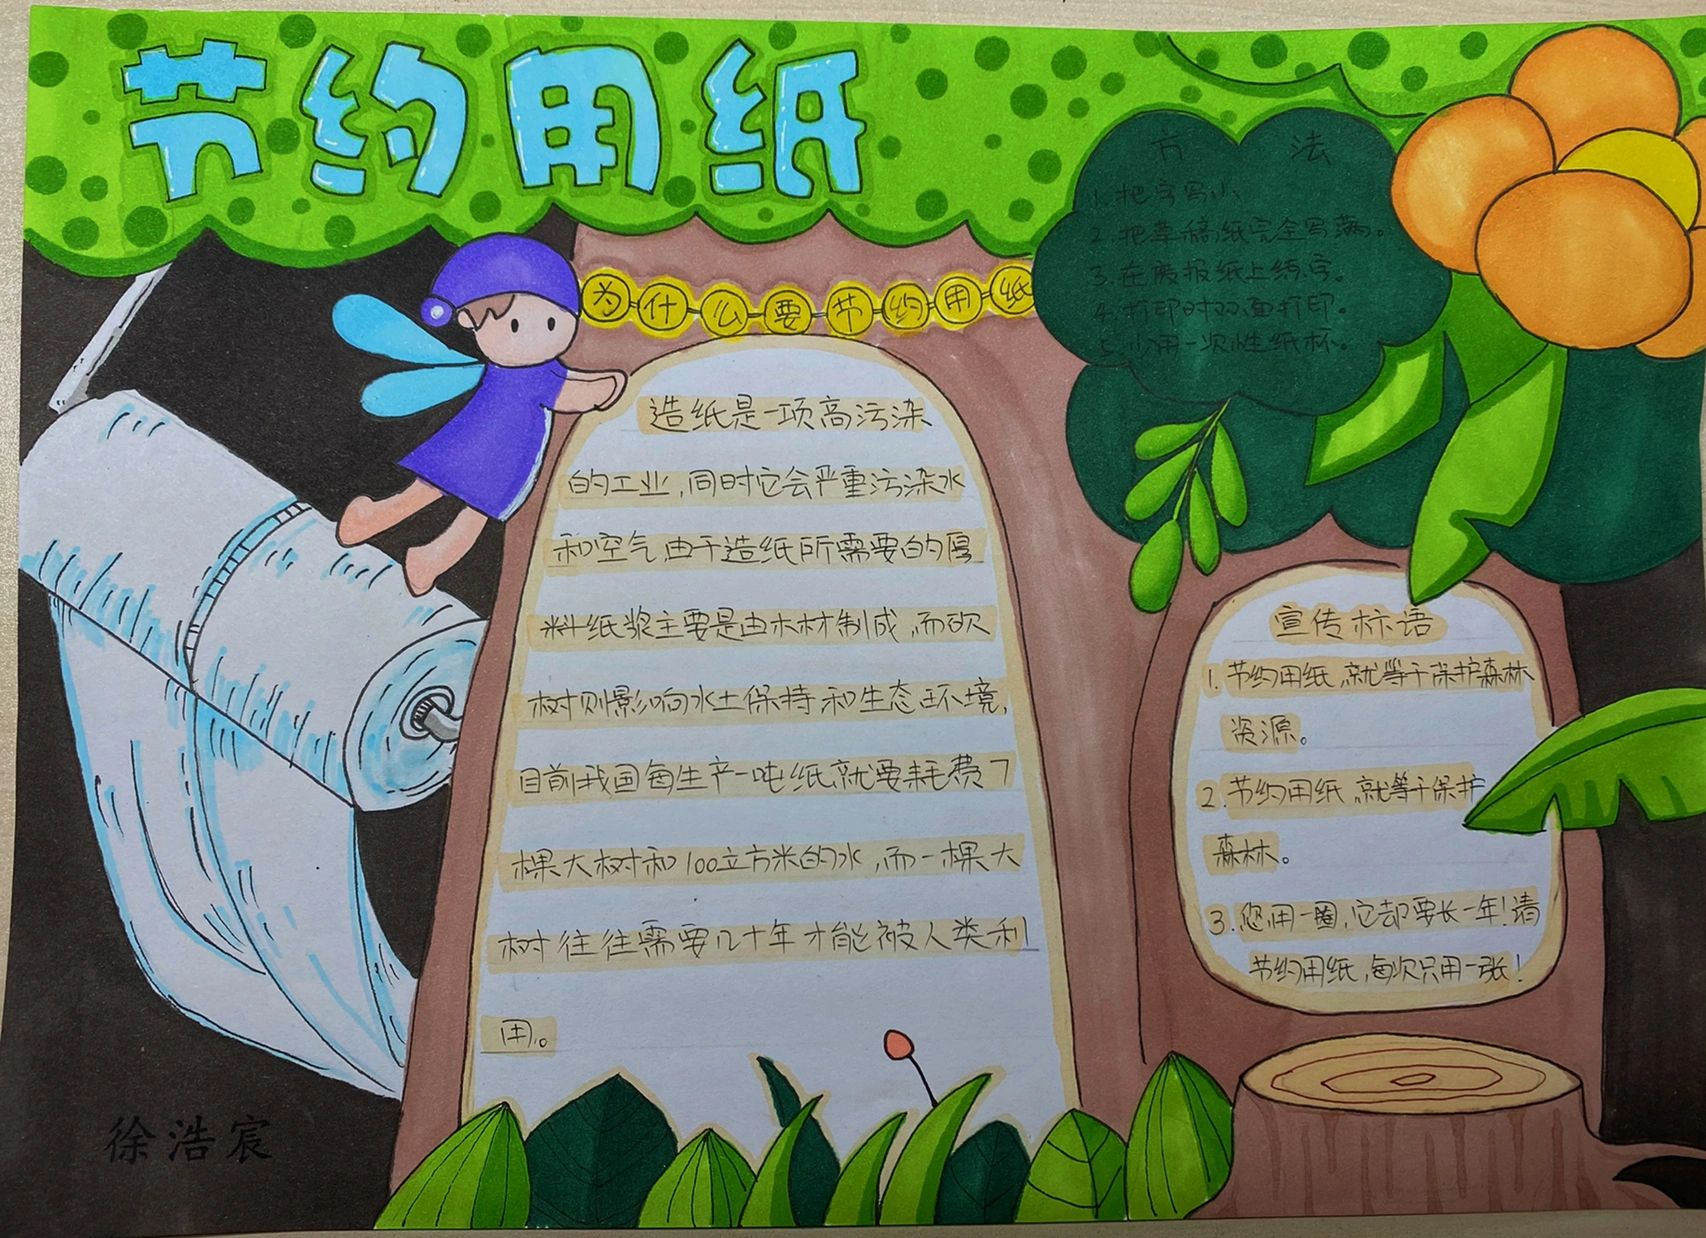 节约用纸
为什么要节约用纸
造纸是一项高污染
的工业，同时它会严重污染水
和空气，由于造纸所需要的原
料纸浆主要是由木材制成，而砍
树则影响水土保持和生态环境，
目前我国每生产一吨纸就要耗费7
棵大树和100立方米的水，而一棵大
树往往需要几十年才能被人类利
用。
方法
1.把字写小、
2.把草稿纸完全写满。
3.在废报纸上练字。
4.打印时双面打印。
5.少用一次性纸杯。
宣传标语
1.节约用纸，就等于保护森林
资源。
2.节约用纸，就等于保护
森林。
3.您用一圈，它却要长一年！请
节约用纸，每次只用一张！
徐浩宸